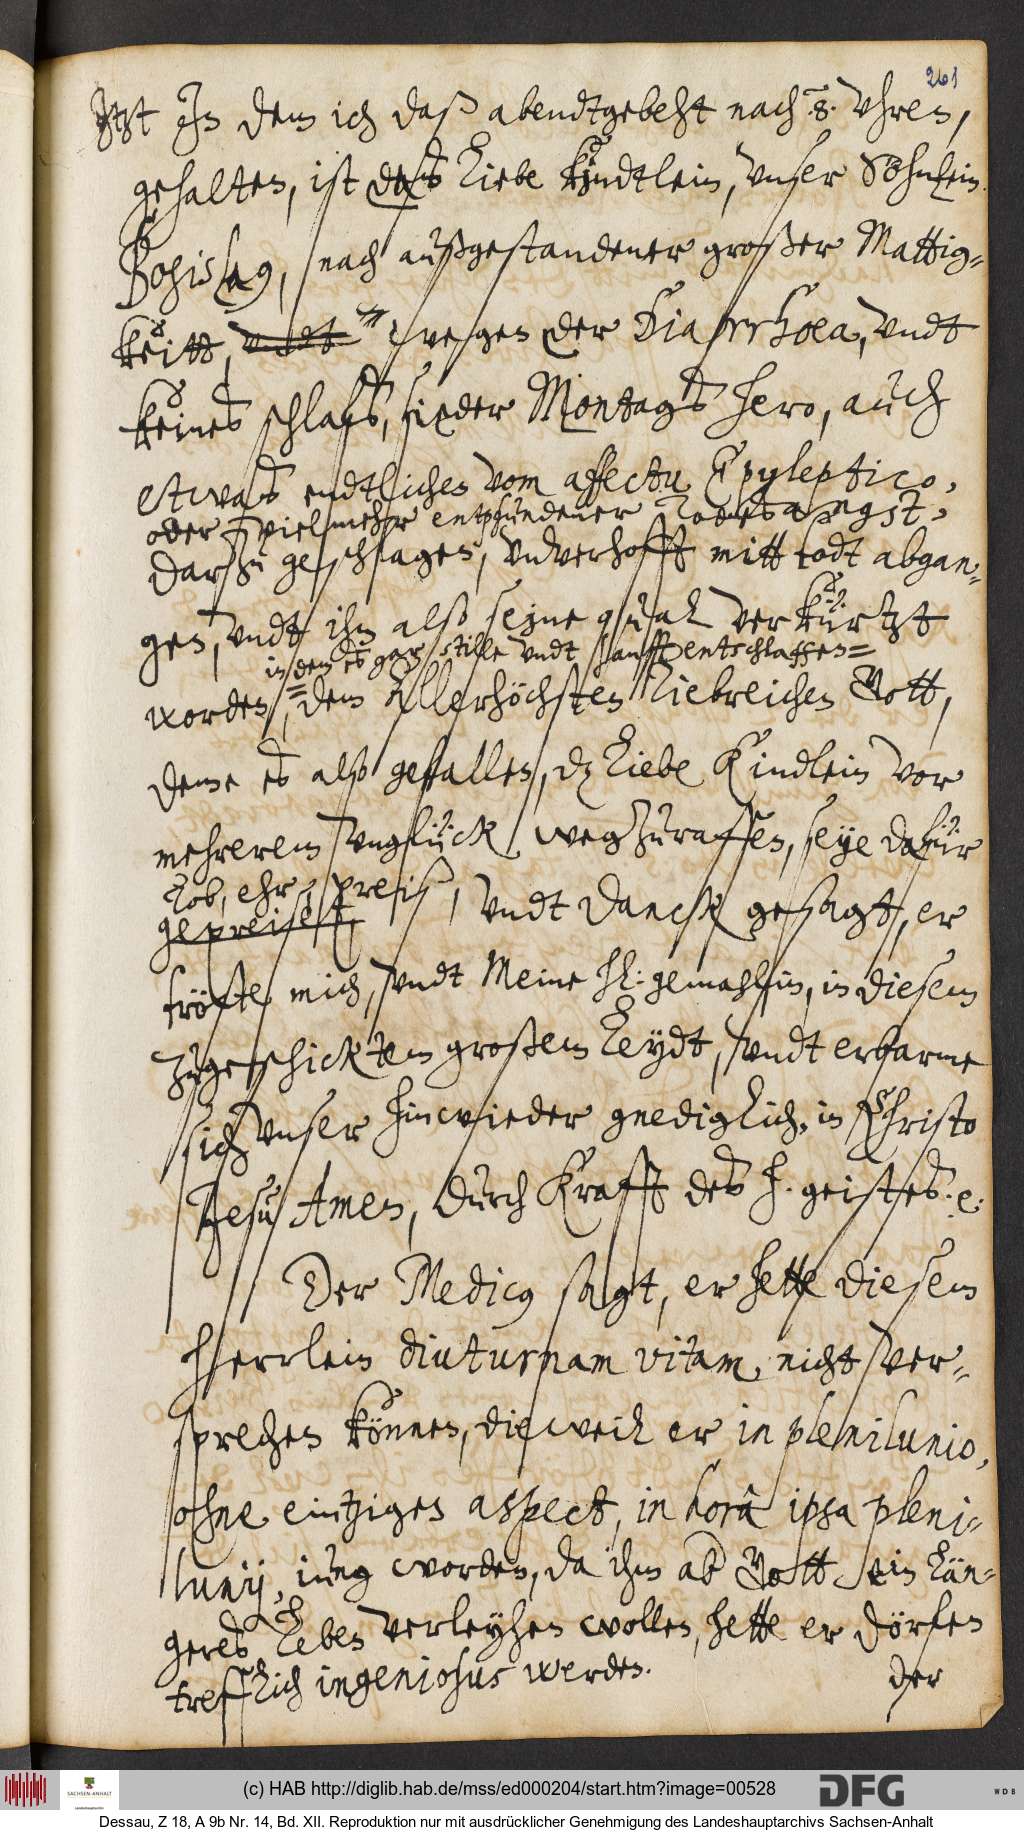 261
Itzt In dem ich daß abendtgebeht nach .8. Vhren,
gehalten, ist das liebe kindtlein, vnser Söhnlein
Bogislaus, nach außgestandener großer Mattig-
keitt, vndt wegen der Diarrhoea, vndt
keines schlafs, sieder Montags hero, auch
etwas endtliches vom affectu Epyleptico,
oder vielmehr entpfundener Todesangst,
darzu geschlagen, vnverhofft mitt todt abgan-
gen, vndt ihm also seine quahl verkürtzt
in dem es gar stille vndt sanfft entschlaffen=
worden, dem Allerhöchsten liebreichen Gott,
deme es also gefallen, dz liebe Kindlein vor
mehrerem vnglück wegzuraffen, seye dafür
Lob, ehr, preiß,
gepreiset, vndt danck gesagt, er
tröste mich, vndt Meine hl: gemahlin, in diesem
zugeschicktem großem Leydt, vndt erbarme
sich vnser hinwieder gnediglich, in Christo
Jesu Amen, durch Krafft des h. geistes. e:
Der Medicus sagt, er hette diesem
Herrlein diuturnam vitam, nicht ver-
sprechen können, dieweil er in plenilunio,
ohne eintziges aspect, in horâ ipsa pleni-
lunij, iung worden, da ihm ab Gott ein län-
geres Leben verleyhen wollen, hette er dörfen
trefflich ingeniosus werden.
der
(c) HAB http://diglib.hab.de/mss/ed000204/start.htm?image=00528
SACHSEN-ANHALT
Landeshauptarchiv
DFG
WDB
Dessau, Z 18, A 9b Nr. 14, Bd. XII. Reproduktion nur mit ausdrücklicher Genehmigung des Landeshauptarchivs Sachsen-Anhalt